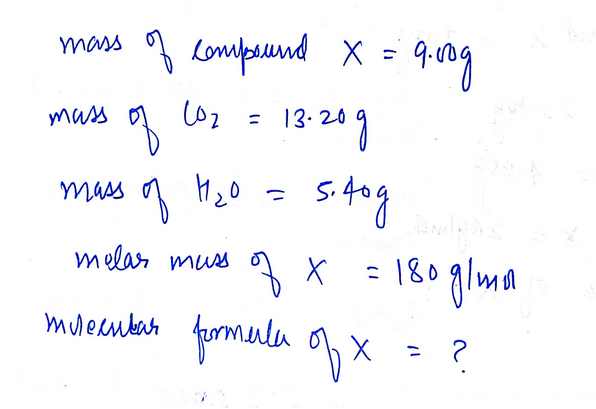 mass of compound X = 9.00g
mass of CO2 = 13.20 g
mass of H2O = 5.40g
molar mass of X = 180 g/mol
molecular formula of X = ?